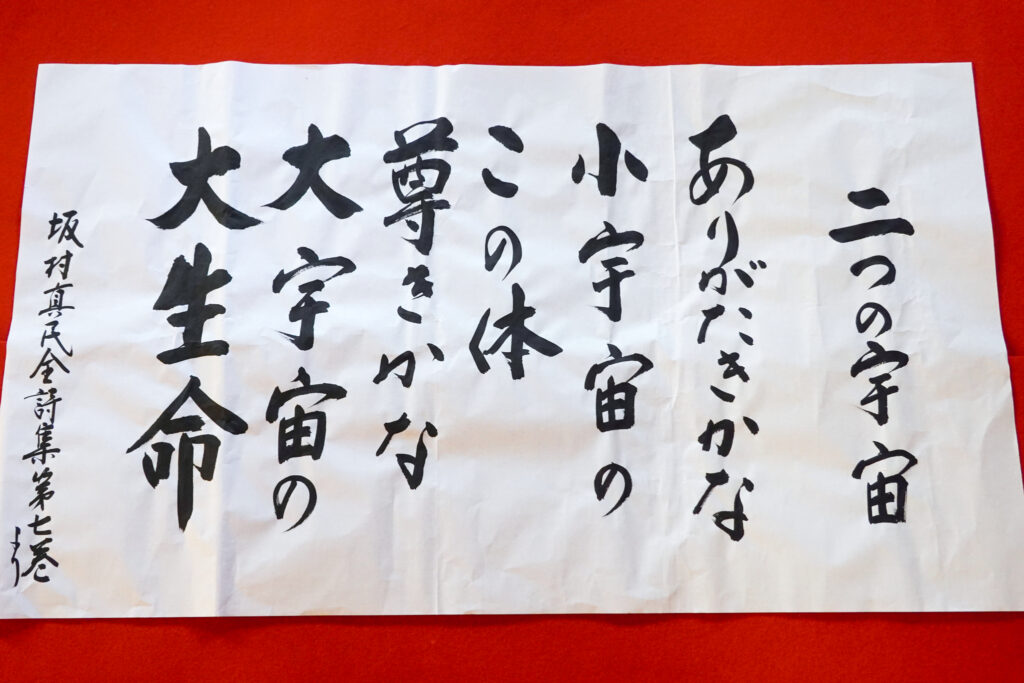 二つの宇宙
ありがたきかな
小宇宙の
この体
尊きかな
大宇宙の
大生命
坂村真民全詩集第七巻より